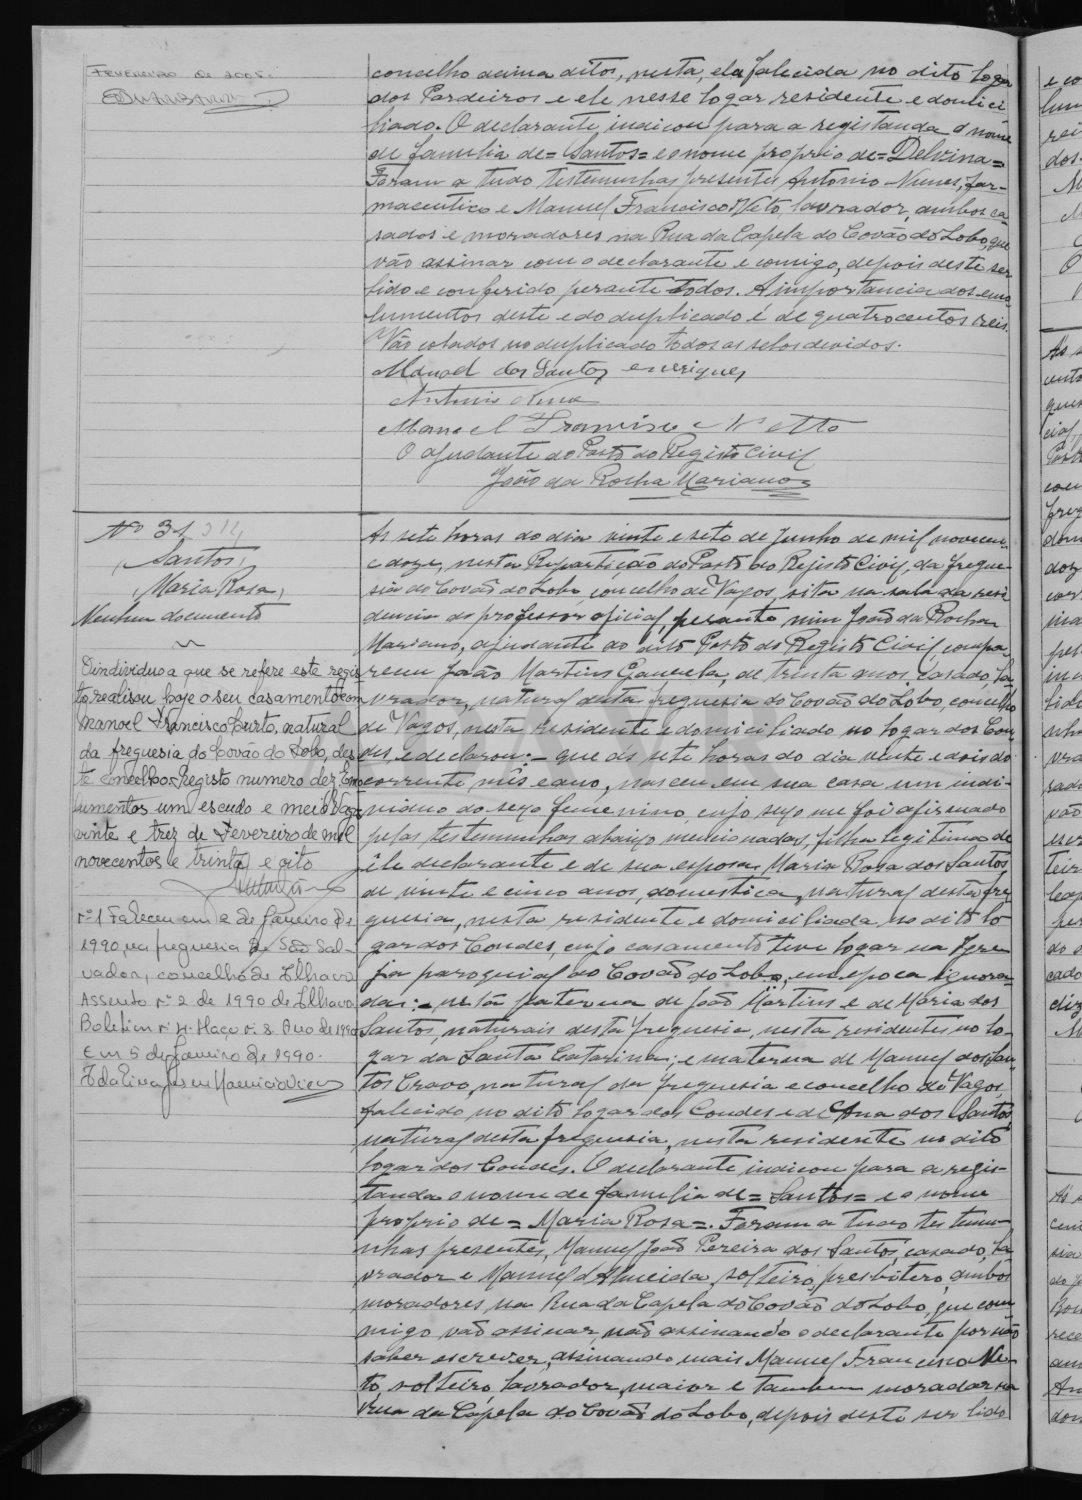 Fevereiro de 2005.
concelho acima ditos, nesta, ela falecida no dito logar
dos Pardeiros e ele nesse logar residente e domici-
liado. O declarante indicou para a registanda o nome
de familia de= Santos= e o nome proprio de= Delvina=
Foram a tudo testemunhas presentes Antonio Nunes, far-
maceutico e Manuel Francisco Neto, lavrador, ambos ca-
sados e moradores na Rua da Capela do Covão do Lobo, que
vão assinar com o declarante e comigo, depois deste ser
lido e conferido perante todos. A importancia dos emo-
lumentos deste e do duplicado é de quatrocentos reis.
Vão colados no duplicado todos os selos devidos.
Manoel dos Santos
Antonio Nunes
Manoel Francisco Netto
O ajudante do Posto do Registo Civil
João da Rocha Mariano
Nº 31
Santos,
Maria Rosa,
Nenhum documento
O individuo a que se refere este regis-
to realisou hoje o seu casamento com
Manoel Francisco Curto, natural
da freguesia do Covão do Lobo, des-
te concelho. Registo numero dez. Emo-
lumentos um escudo e meio.
vinte e trez de Fevereiro de mil
novecentos e trinta e oito
nº 1 Faleceu em 2 de Janeiro de
1990, na freguesia de São Sal-
vador, concelho de Ilhavo
Assento nº 2 de 1990 de Ilhavo
Boletim nº 4. Maço nº 8. Ano de 1990
Em 5 de Janeiro de 1990.
As sete horas do dia vinte e sete de Junho de mil novecen-
e doze, nesta Repartição do Posto do Registo Civil, da fregue-
sia do Covão do Lobo, concelho de Vagos, sita na sala da resi-
dencia do professor oficial, perante mim João da Rocha
Mariano, ajudante do dito Posto do Registo Civil, compa-
receu João Martins, de trinta anos, casado, la-
vrador, natural desta freguesia do Covão do Lobo, concelho
de Vagos, nesta residente e domiciliado no logar dos Con-
des, e declarou:- que ás sete horas do dia vinte e dois do
corrente mês e ano, nasceu em sua casa um indi-
viduo do sexo femenino, cujo sexo me foi afirmado
pelas testemunhas abaixo mencionadas, filha legitima de
ele declarante e de sua esposa Maria Rosa dos Santos
de vinte e cinco anos, domestica, natural desta fre-
guesia, nesta residente e domiciliada no dito lo-
gar dos Condes, cujo casamento teve logar na Igre-
ja paroquial do Covão do Lobo, em epoca ignora-
da:- neta paterna de João Martins e de Maria dos
Santos, naturais desta freguesia, nesta residentes no lo-
gar da Santa Catarina; e materna de Manuel dos San-
tos Cravo, natural da freguesia e concelho de Vagos,
falecido no dito logar dos Condes e de Ana dos Santos
natural desta freguesia, nesta residente no dito
logar dos Condes. O declarante indicou para a regis-
tanda o nome de familia de= Santos= e o nome
proprio de= Maria Rosa=. Foram a tudo testemu-
nhas presentes, Manuel João Pereira dos Santos, casado, la-
vrador e Manuel d'Almeida, solteiro, presbitero, ambos
moradores na Rua da Capela do Covão do Lobo, que com-
migo vão assinar, não assinando o declarante por não
saber escrever, assinando mais Manuel Francisco Ne-
to, solteiro, lavrador, maior e tambem morador na
rua da Capela do Covão do Lobo, depois deste ser lido